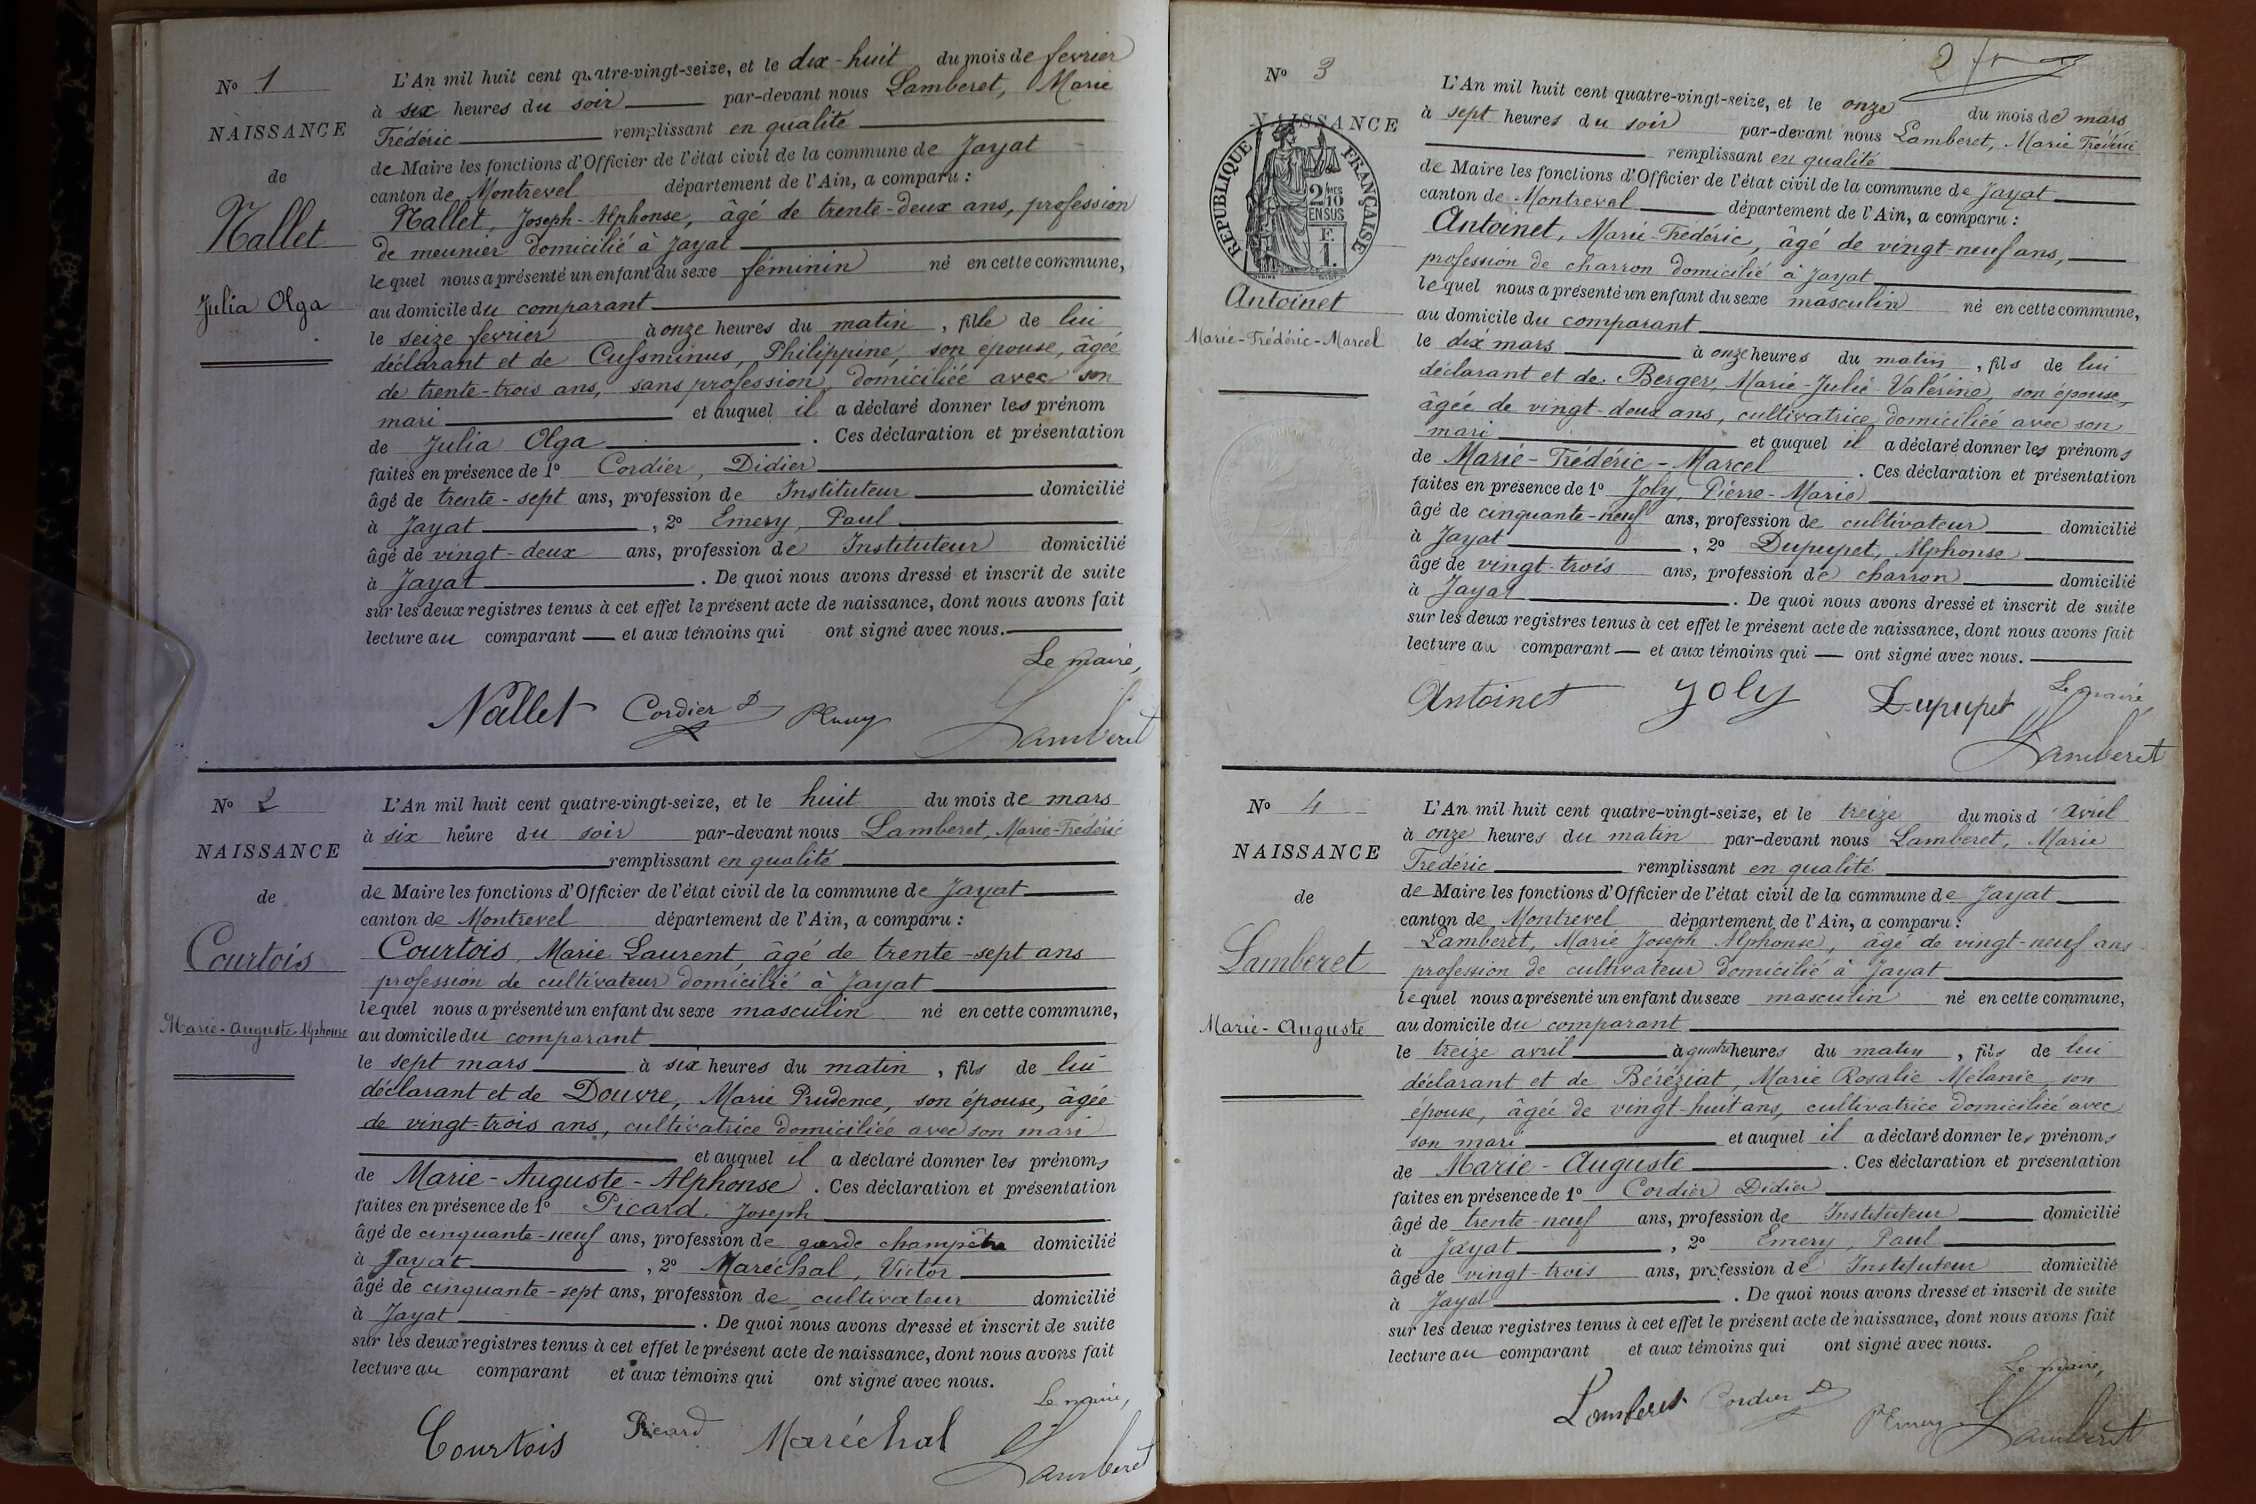 Nº 1
NAISSANCE
de
Nallet
Julia Olga
L'An mil huit cent quatre-vingt-seize, et le dix-huit du mois de fevrier
à six heures du soir par-devant nous Lamberet, Marie
Frédéric remplissant en qualité
de Maire les fonctions d'Officier de l'état civil de la commune de Jayat
canton de Montrevel département de l'Ain, a comparu :
Nallet, Joseph-Alphonse, âgé de trente-deux ans, profession
de meunier domicilié à Jayat
lequel nous a présenté un enfant du sexe féminin né en cette commune,
au domicile du comparant
le seize fevrier à onze heures du matin, fille de lui
déclarant et de Cussminus, Philippine, son epouse, âgée
de trente-trois ans, sans profession, domiciliée avec son
mari et auquel il a déclaré donner les prénom
de Julia Olga . Ces déclaration et présentation
faites en présence de 1º Cordier, Didier
âgé de trente-sept ans, profession de Instituteur domicilié
à Jayat , 2º Emery, Paul
âgé de vingt-deux ans, profession de Instituteur domicilié
à Jayat . De quoi nous avons dressé et inscrit de suite
sur les deux registres tenus à cet effet le présent acte de naissance, dont nous avons fait
lecture au comparant et aux témoins qui ont signé avec nous.
Le maire,
Nallet Cordier D PEmery Lamberet
Nº 2
NAISSANCE
de
Courtois
Marie-Auguste-Alphonse
L'An mil huit cent quatre-vingt-seize, et le huit du mois de mars
à six heure du soir par-devant nous Lamberet, Marie-Frédéric
remplissant en qualité
de Maire les fonctions d'Officier de l'état civil de la commune de Jayat
canton de Montrevel département de l'Ain, a comparu :
Courtois, Marie Laurent, âgé de trente-sept ans
profession de cultivateur domicilié à Jayat
lequel nous a présenté un enfant du sexe masculin né en cette commune,
au domicile du comparant
le sept mars à six heures du matin, fils de lui
déclarant et de Douvre, Marie Prudence, son épouse, âgée
de vingt-trois ans, cultivatrice domiciliée avec son mari
et auquel il a déclaré donner les prénoms
de Marie-Auguste-Alphonse . Ces déclaration et présentation
faites en présence de 1º Picard, Joseph
âgé de cinquante-neuf ans, profession de garde champêtre domicilié
à Jayat , 2º Maréchal, Victor
âgé de cinquante-sept ans, profession de cultivateur domicilié
à Jayat . De quoi nous avons dressé et inscrit de suite
sur les deux registres tenus à cet effet le présent acte de naissance, dont nous avons fait
lecture au comparant et aux témoins qui ont signé avec nous.
Le maire,
Courtois Picard Maréchal Lamberet
2
Nº 3
NAISSANCE
RÉPUBLIQUE FRANÇAISE
2/10 MES
EN SUS
F.
1.
Antoinet
Marie-Frédéric-Marcel
L'An mil huit cent quatre-vingt-seize, et le onze du mois de mars
à sept heures du soir par-devant nous Lamberet, Marie Frédéric
remplissant en qualité
de Maire les fonctions d'Officier de l'état civil de la commune de Jayat
canton de Montrevel département de l'Ain, a comparu :
Antoinet, Marie-Frédéric, âgé de vingt-neuf ans,
profession de charron domicilié à Jayat
lequel nous a présenté un enfant du sexe masculin né en cette commune,
au domicile du comparant
le dix mars à onze heures du matin, fils de lui
déclarant et de Berger, Marie-Julie Valérine, son épouse,
âgée de vingt-deux ans, cultivatrice domiciliée avec son
mari et auquel il a déclaré donner les prénoms
de Marie-Frédéric-Marcel . Ces déclaration et présentation
faites en présence de 1º Joly, Pierre-Marie
âgé de cinquante-neuf ans, profession de cultivateur domicilié
à Jayat , 2º Dupupet, Alphonse
âgé de vingt-trois ans, profession de charron domicilié
à Jayat . De quoi nous avons dressé et inscrit de suite
sur les deux registres tenus à cet effet le présent acte de naissance, dont nous avons fait
lecture au comparant et aux témoins qui ont signé avec nous.
Le maire,
Antoinet Joly Dupupet Lamberet
Nº 4
NAISSANCE
de
Lamberet
Marie-Auguste
L'An mil huit cent quatre-vingt-seize, et le treize du mois d'avril
à onze heures du matin par-devant nous Lamberet, Marie
Frédéric remplissant en qualité
de Maire les fonctions d'Officier de l'état civil de la commune de Jayat
canton de Montrevel département de l'Ain, a comparu :
Lamberet, Marie Joseph Alphonse, âgé de vingt-neuf ans
profession de cultivateur domicilié à Jayat
lequel nous a présenté un enfant du sexe masculin né en cette commune,
au domicile du comparant
le treize avril à quatre heures du matin, fils de lui
déclarant et de Béréziat, Marie Rosalie Mélanie, son
épouse, âgée de vingt-huit ans, cultivatrice domiciliée avec
son mari et auquel il a déclaré donner les prénoms
de Marie-Auguste . Ces déclaration et présentation
faites en présence de 1º Cordier Didier
âgé de trente-neuf ans, profession de Instituteur domicilié
à Jayat , 2º Emery, Paul
âgé de vingt-trois ans, profession de Instituteur domicilié
à Jayat . De quoi nous avons dressé et inscrit de suite
sur les deux registres tenus à cet effet le présent acte de naissance, dont nous avons fait
lecture au comparant et aux témoins qui ont signé avec nous.
Le maire,
Lamberet Cordier D PEmery Lamberet